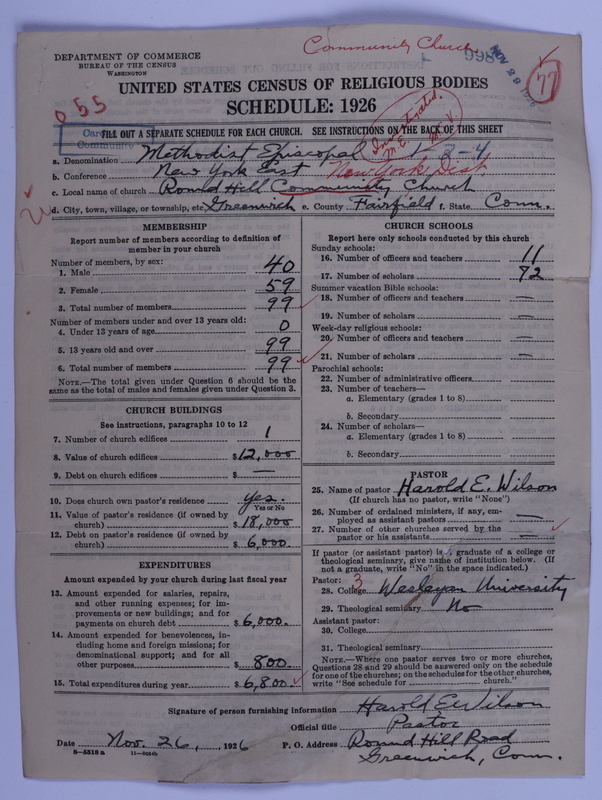 Community Church.
DEPARTMENT OF COMMERCE
BUREAU OF THE CENSUS
WASHINGTON
NOV 29 1926
77
UNITED STATES CENSUS OF RELIGIOUS BODIES
SCHEDULE: 1926
055
FILL OUT A SEPARATE SCHEDULE FOR EACH CHURCH. SEE INSTRUCTIONS ON THE BACK OF THIS SHEET
a. Denomination Methodist Episcopal 1-3-4
b. Conference New York East New York Dist.
c. Local name of church Round Hill Community Church
d. City, town, village, or township, etc. Greenwich e. County Fairfield f. State Conn.
MEMBERSHIP
Report number of members according to definition of
member in your church
Number of members, by sex:
1. Male 40
2. Female 59
3. Total number of members 99
Number of members under and over 13 years old:
4. Under 13 years of age 0
5. 13 years old and over 99
6. Total number of members 99
NOTE.—The total given under Question 6 should be the
same as the total of males and females given under Question 3.
CHURCH BUILDINGS
See instructions, paragraphs 10 to 12
7. Number of church edifices 1
8. Value of church edifices $12,000
9. Debt on church edifices $ —
10. Does church own pastor's residence Yes.
Yes or No
11. Value of pastor's residence (if owned by
church) $18,000
12. Debt on pastor's residence (if owned by
church) $6,000.
EXPENDITURES
Amount expended by your church during last fiscal year
13. Amount expended for salaries, repairs,
and other running expenses; for im-
provements or new buildings; and for
payments on church debt $6,000.
14. Amount expended for benevolences, in-
cluding home and foreign missions; for
denominational support; and for all
other purposes $800.
15. Total expenditures during year $6,800.
CHURCH SCHOOLS
Report here only schools conducted by this church
Sunday schools:
16. Number of officers and teachers 11
17. Number of scholars 72
Summer vacation Bible schools:
18. Number of officers and teachers —
19. Number of scholars —
Week-day religious schools:
20. Number of officers and teachers —
21. Number of scholars —
Parochial schools:
22. Number of administrative officers
23. Number of teachers—
a. Elementary (grades 1 to 8)
b. Secondary
24. Number of scholars—
a. Elementary (grades 1 to 8)
b. Secondary
PASTOR
25. Name of pastor Harold E. Wilson
(If church has no pastor, write "None")
26. Number of ordained ministers, if any, em-
ployed as assistant pastors —
27. Number of other churches served by the
pastor or his assistants —
If pastor (or assistant pastor) is a graduate of a college or
theological seminary, give name of institution below. (If
not a graduate, write "No" in the space indicated.)
Pastor: 3
28. College Wesleyan University
29. Theological seminary No
Assistant pastor:
30. College
31. Theological seminary
NOTE.—Where one pastor serves two or more churches,
Questions 28 and 29 should be answered only on the schedule
for one of the churches; on the schedules for the other churches,
write "See schedule for church."
Signature of person furnishing information Harold E. Wilson
Official title Pastor
Date Nov. 26, 1926 P. O. Address Round Hill Road
Greenwich, Conn.
8-5518 a